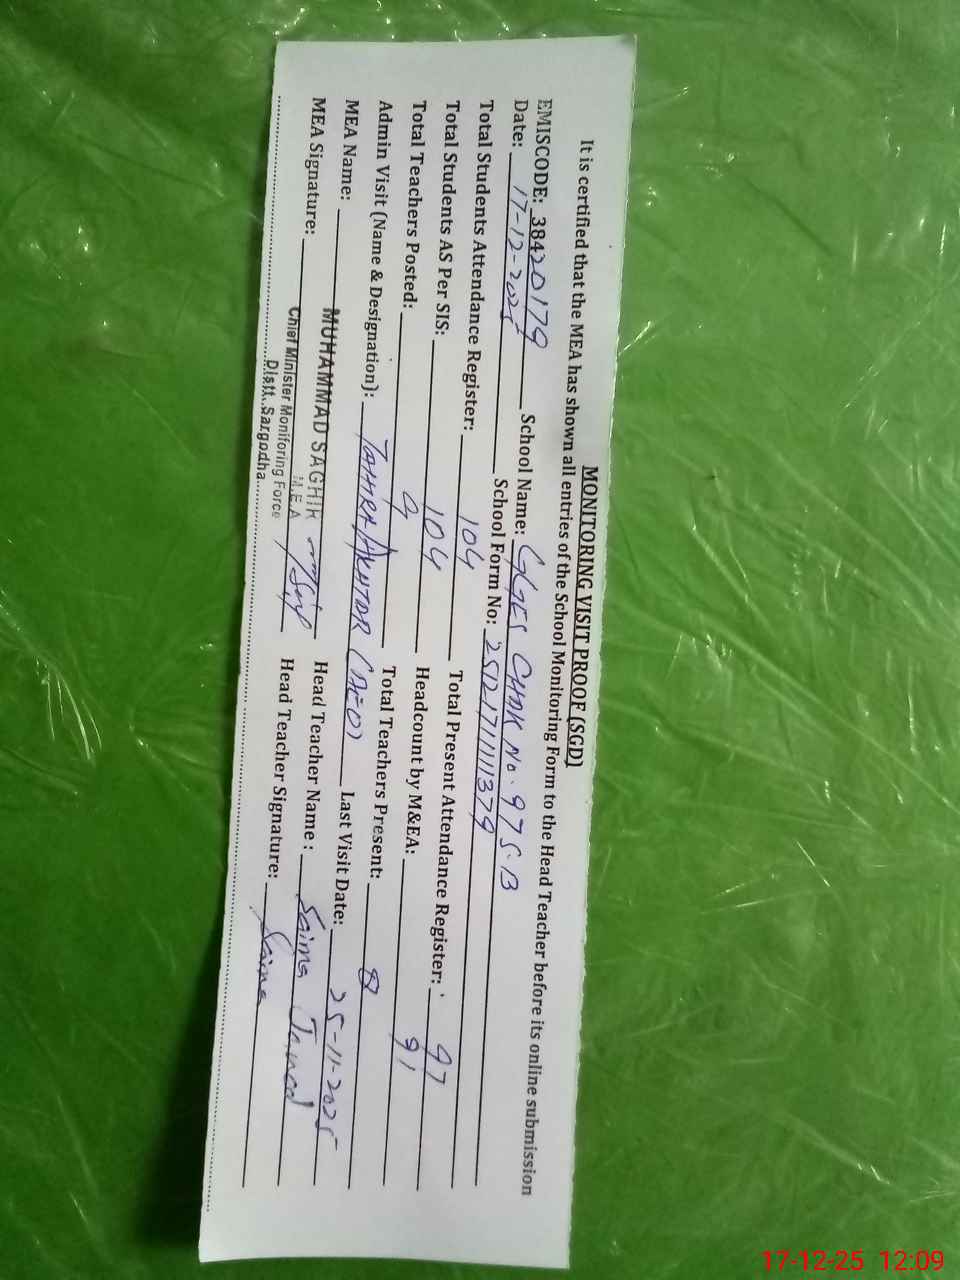 MONITORING VISIT PROOF (SGD)
It is certified that the MEA has shown all entries of the School Monitoring Form to the Head Teacher before its online submission
EMISCODE: 38420179 School Name: GGES CHAK No. 97 S.B
Date: 17-12-2025 School Form No: 2512171111379
Total Students Attendance Register: 104 Total Present Attendance Register: 97
Total Students AS Per SIS: 104 Headcount by M&EA: 91
Total Teachers Posted: 9 Total Teachers Present: 8
Admin Visit (Name & Designation): TAHIRA AKHTAR (AEO) Last Visit Date: 25-11-2025
MEA Name: MUHAMMAD SAGHIR Head Teacher Name : Saima Javed
M.E.A
MEA Signature: Head Teacher Signature: Saima
Chief Minister Monitoring Force
Distt. Sargodha
17-12-25 12:09